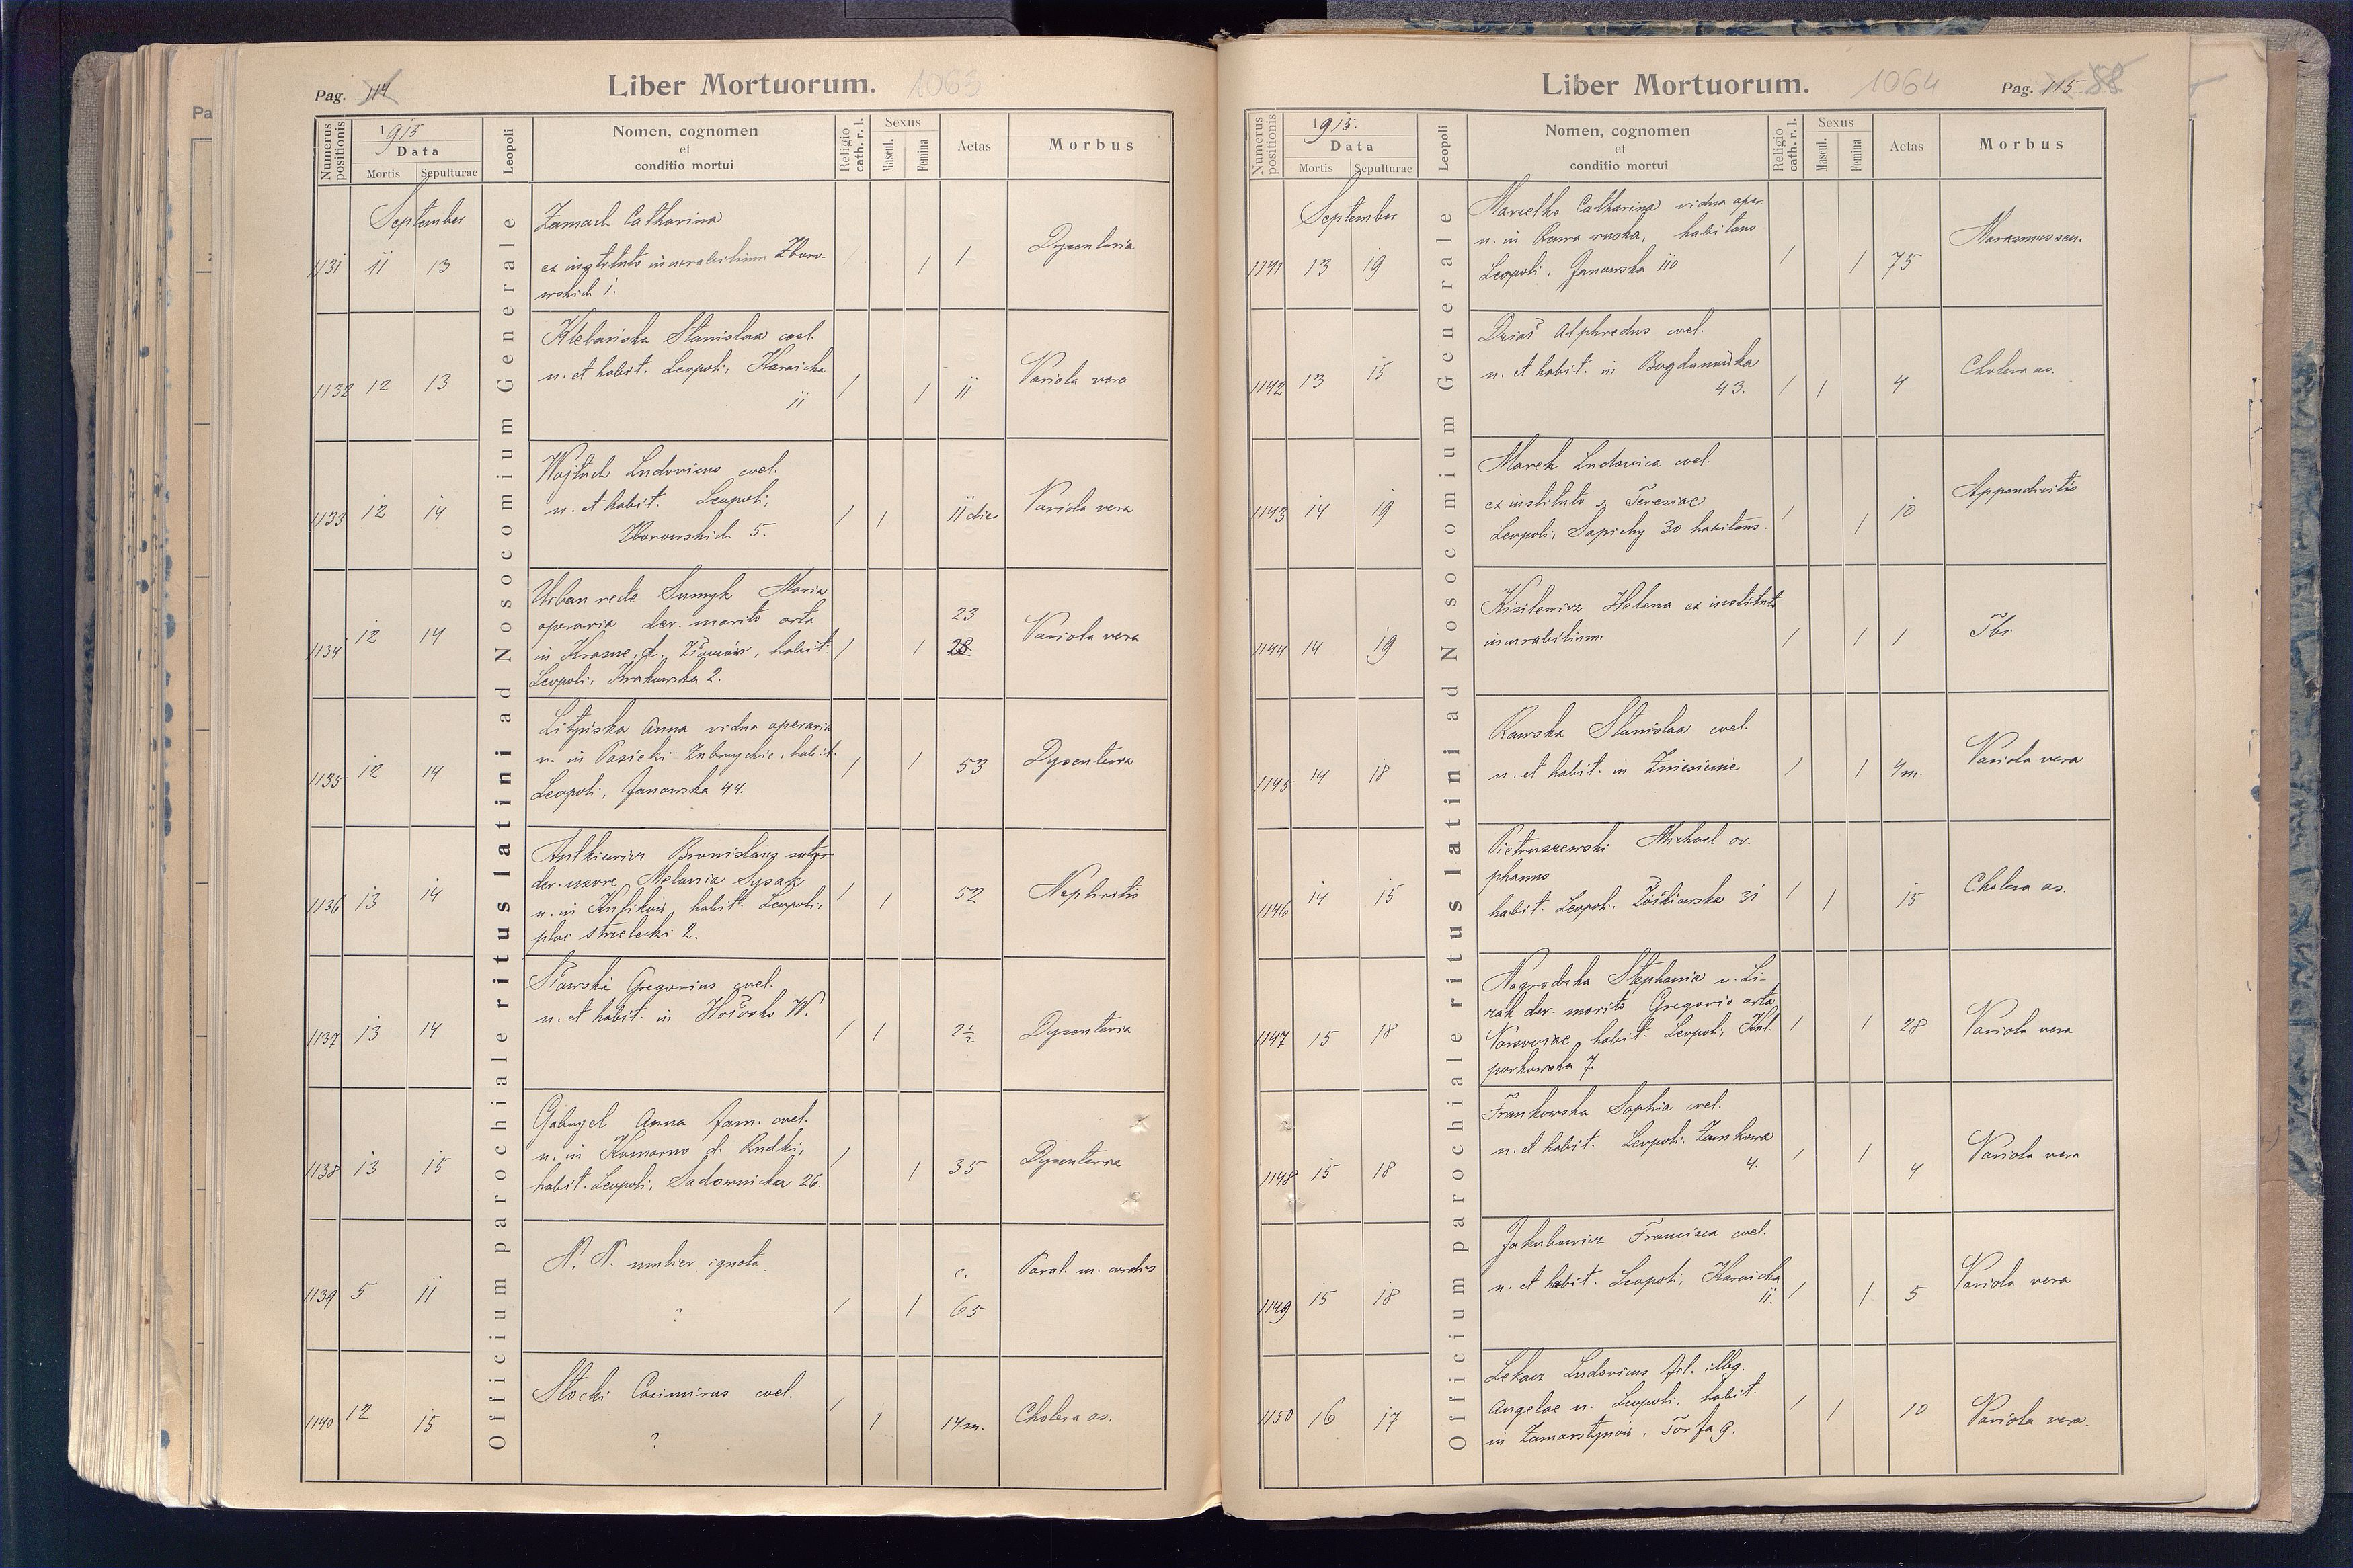 Pag. 114
Liber Mortuorum.
1063
Numerus positionis
1915
Data
Mortis
Sepulturae
Leopoli
Nomen, cognomen
et
conditio mortui
Religio cath. r. l.
Sexus
Mascul.
Femina
Aetas
Morbus
Officium parochiale ritus latini ad Nosocomium Generale
September
1131 11 13
Zamach Catharina
ex instituto incurabilium Zboro-
wskich 1.
1 1 Dysenteria
1132 12 13
Klebańska Stanislaa coel.
n. et habit. Leopoli, Karaicka
11
1 1 11 Variola vera
1133 12 14
Wojtuch Ludovicus coel.
n. et habit. Leopoli,
Zborowskich 5.
1 1 11 dies Variola vera
1134 12 14
Urban recte Sumyk Maria
operaria der. marito orta
in Krasne, d. habit.
Leopoli, Krakowska 2.
1 1 23 28 Variola vera
1135 12 14
Lityńska Anna vidua operaria
n. in Pasieki Zubrzyckie, habit.
Leopoli, Janowska 44.
1 1 53 Dysenteria
1136 13 14
der. uxore Melania Sysak
n. in Kulików, habit. Leopoli,
plac strzelecki 2.
1 1 52 Nephritis
1137 13 14
Gregorius coel.
n. et habit. in Hołosko W.
1 1 2 1/2 Dysenteria
1138 13 15
Gabryel Anna fam. coel.
n. in Komarno d. Rudki,
habit. Leopoli, Sadownicka 26.
1 1 35 Dysenteria
1139 5 11
N. N. mulier ignota
?
1 1 c. 65 Paral. m. cordis
1140 12 15
Stocki Casimirus coel.
?
1 1 14 m. Cholera as.
Liber Mortuorum.
1064
Pag. 115 58
Numerus positionis
1915.
Data
Mortis
Sepulturae
Leopoli
Nomen, cognomen
et
conditio mortui
Religio cath. r. l.
Sexus
Mascul.
Femina
Aetas
Morbus
Officium parochiale ritus latini ad Nosocomium Generale
September
1141 13 19
Catharina vidua oper.
n. in Rawa ruska, habitans
Leopoli, Janowska 110
1 1 75 Marasmus sen.
1142 13 15
Alphredus coel.
n. et habit. in Bogdanówka
43.
1 1 4 Cholera as.
1143 14 19
Marek Ludovica coel.
ex instituto s. Teresiae
Leopoli, Sapiehy 30 habitans.
1 1 10 Appendicitis
1144 14 19
Kisilewicz Helena ex instituto
incurabilium
1 1 1 Tbc
1145 14 18
Rawska Stanislaa coel.
n. et habit. in Zniesienie
1 1 4 m. Variola vera
1146 14 15
Pietruszewski Michael or-
phanus
habit. Leopoli, Żółkiewska 31
1 1 15 Cholera as.
1147 15 18
Nagrodzka Stephania n. Li-
zak der. marito Gregorio orta
Varsoviae, habit. Leopoli, Kul-
parkowska 7.
1 1 28 Variola vera
1148 15 18
Frankowska Sophia coel.
n. et habit. Leopoli, Zamkowa
4.
1 1 4 Variola vera
1149 15 18
Jakubowicz Francisca coel.
n. et habit. Leopoli, Karaicka
11.
1 1 5 Variola vera
1150 16 17
Lekacz Ludovicus fil. illeg.
Angelae n. Leopoli, habit.
in Zamarstynów, Torfa 9.
1 1 10 Variola vera.